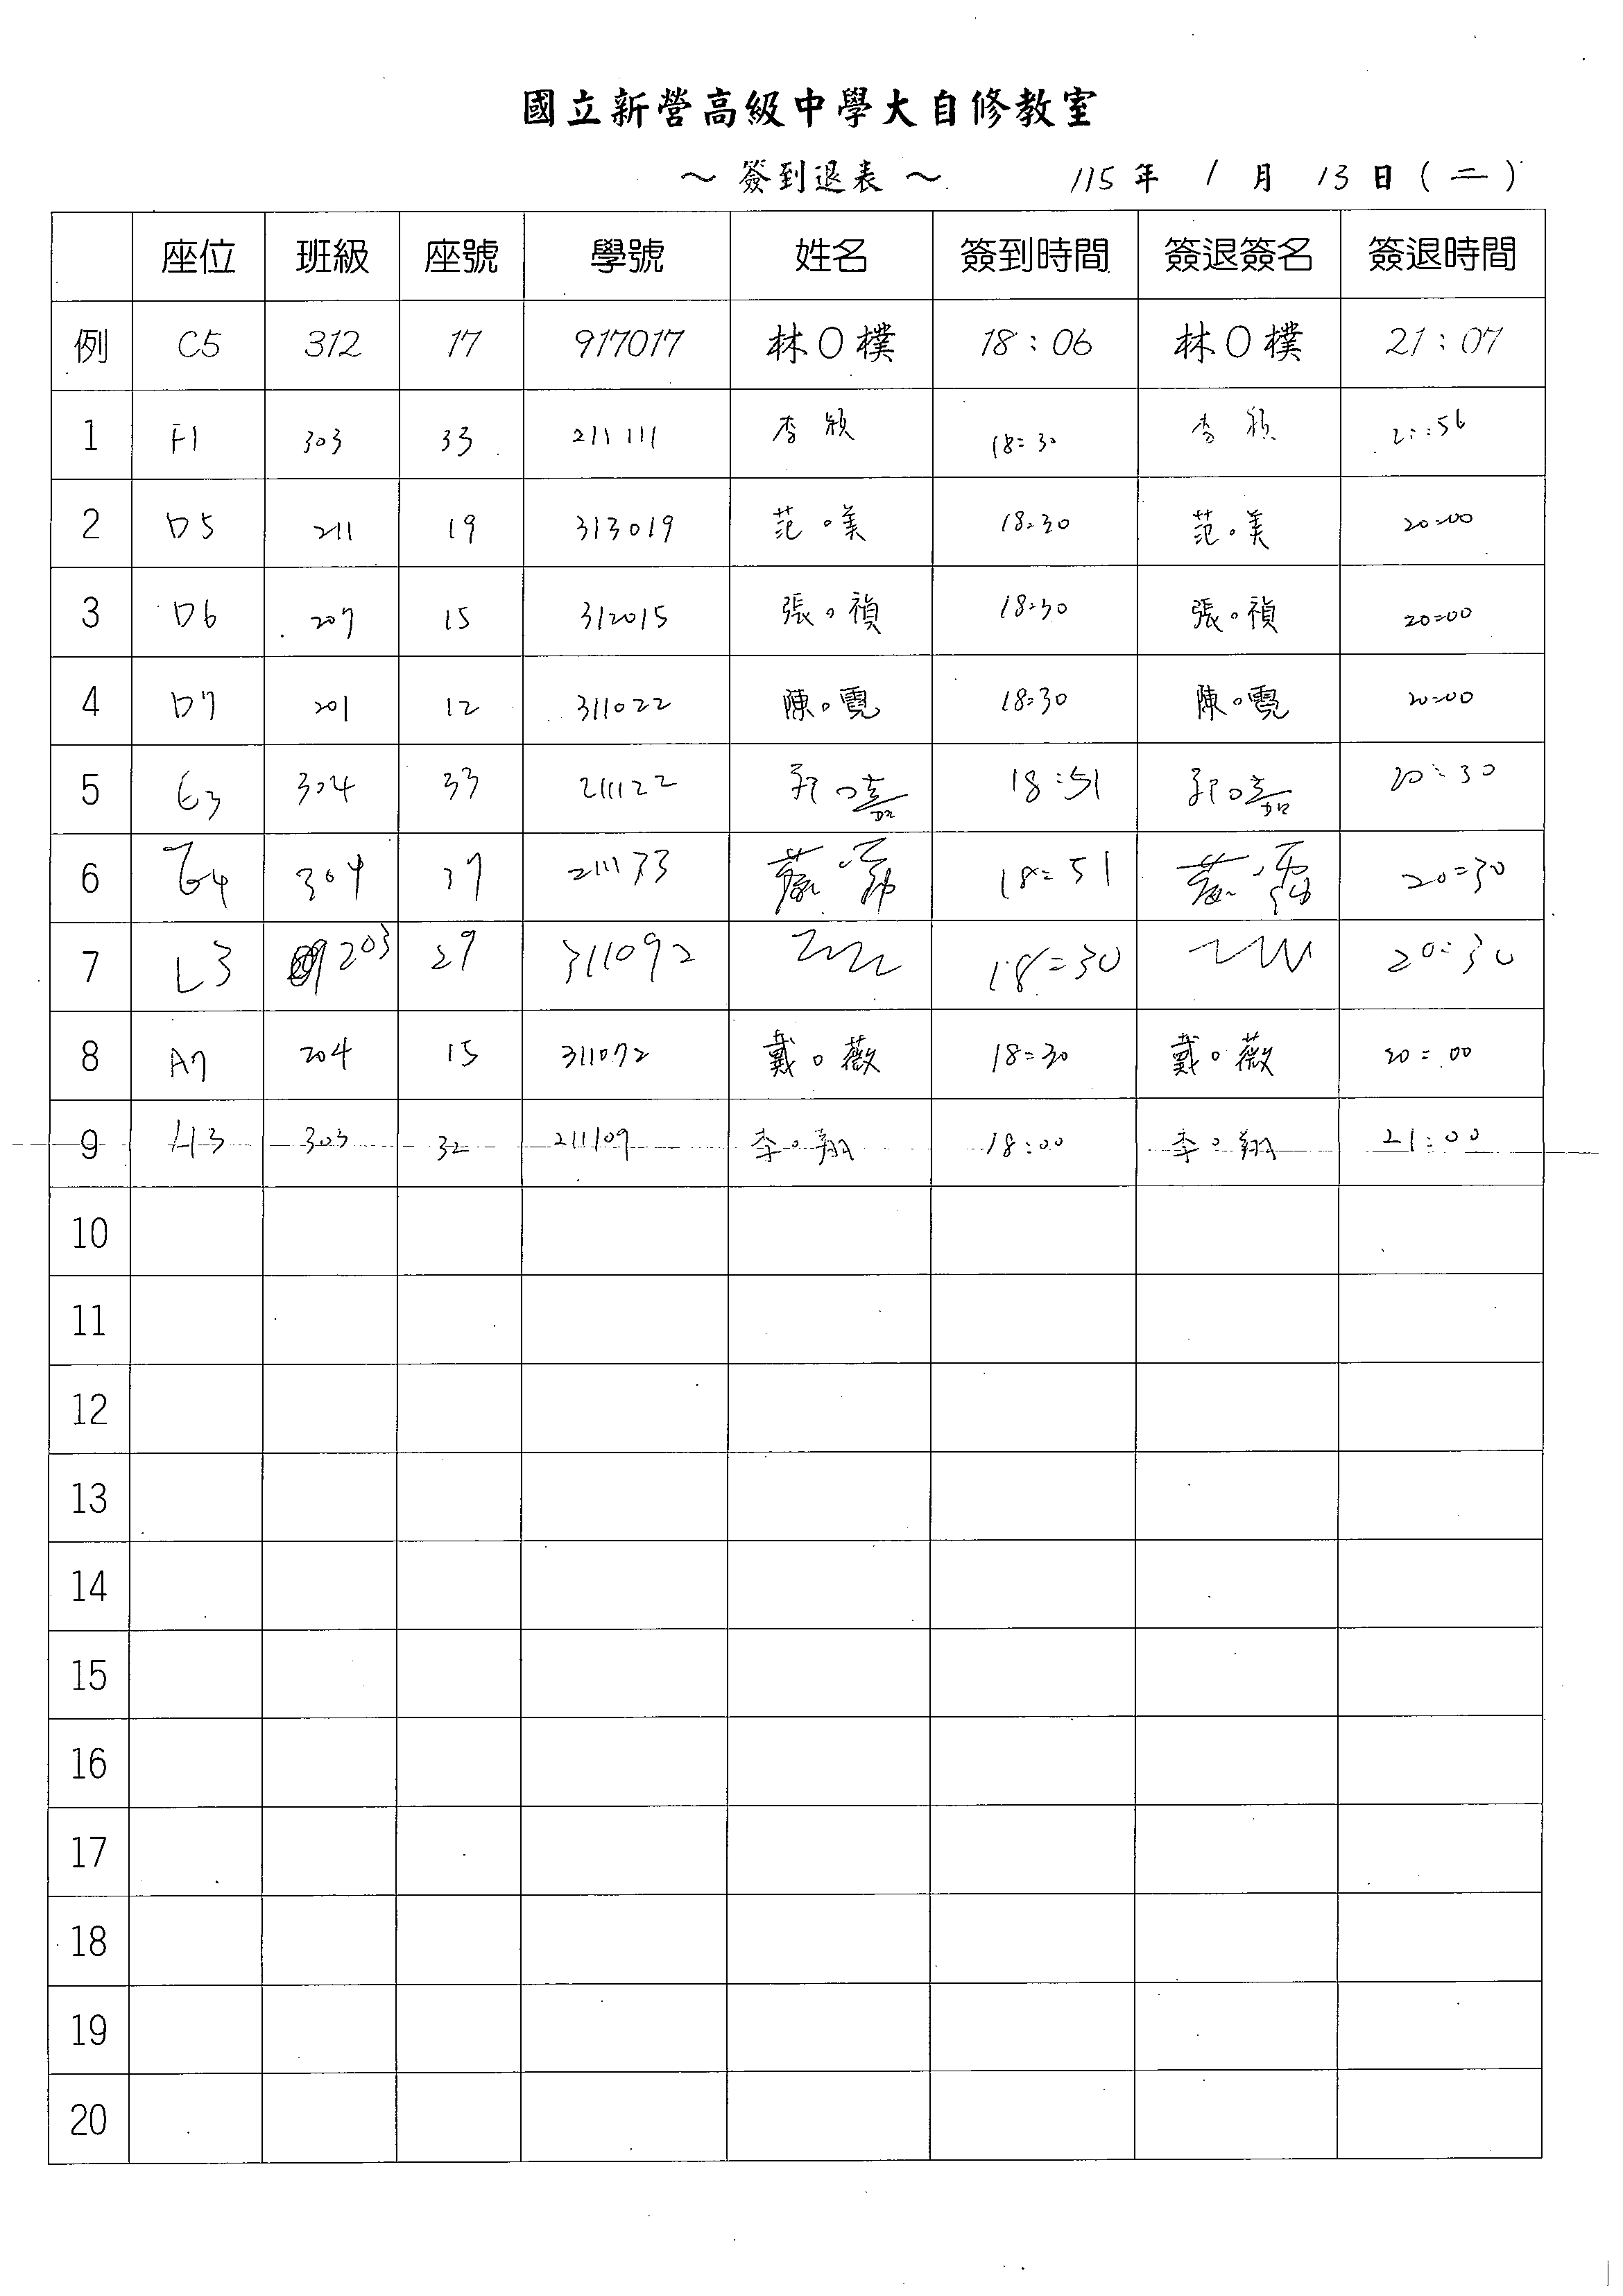 國立新營高級中學大自修教室
～ 簽到退表 ～ 115 年 1 月 13 日 ( 二 )
座位 班級 座號 學號 姓名 簽到時間 簽退簽名 簽退時間
例 C5 312 17 917017 林〇樸 18：06 林〇樸 21：07
1 F1 303 33 211111 李 18:30 李
2 D5 211 19 313019 范。美 18:30 范。美 20:00
3 D6 207 15 312015 張。禎 18:30 張。禎 20:00
4 D7 201 12 311022 陳。霓 18:30 陳。霓 20:00
5 304 33 211122 18:51 20:30
6 304 37 211133 18=51 20=30
7 L3 203 29 311092 18=30 20:30
8 A7 204 15 311072 戴。薇 18=30 戴。薇 20=00
9 303 32 211109 李。翔 18:00 李。翔 21:00
10
11
12
13
14
15
16
17
18
19
20